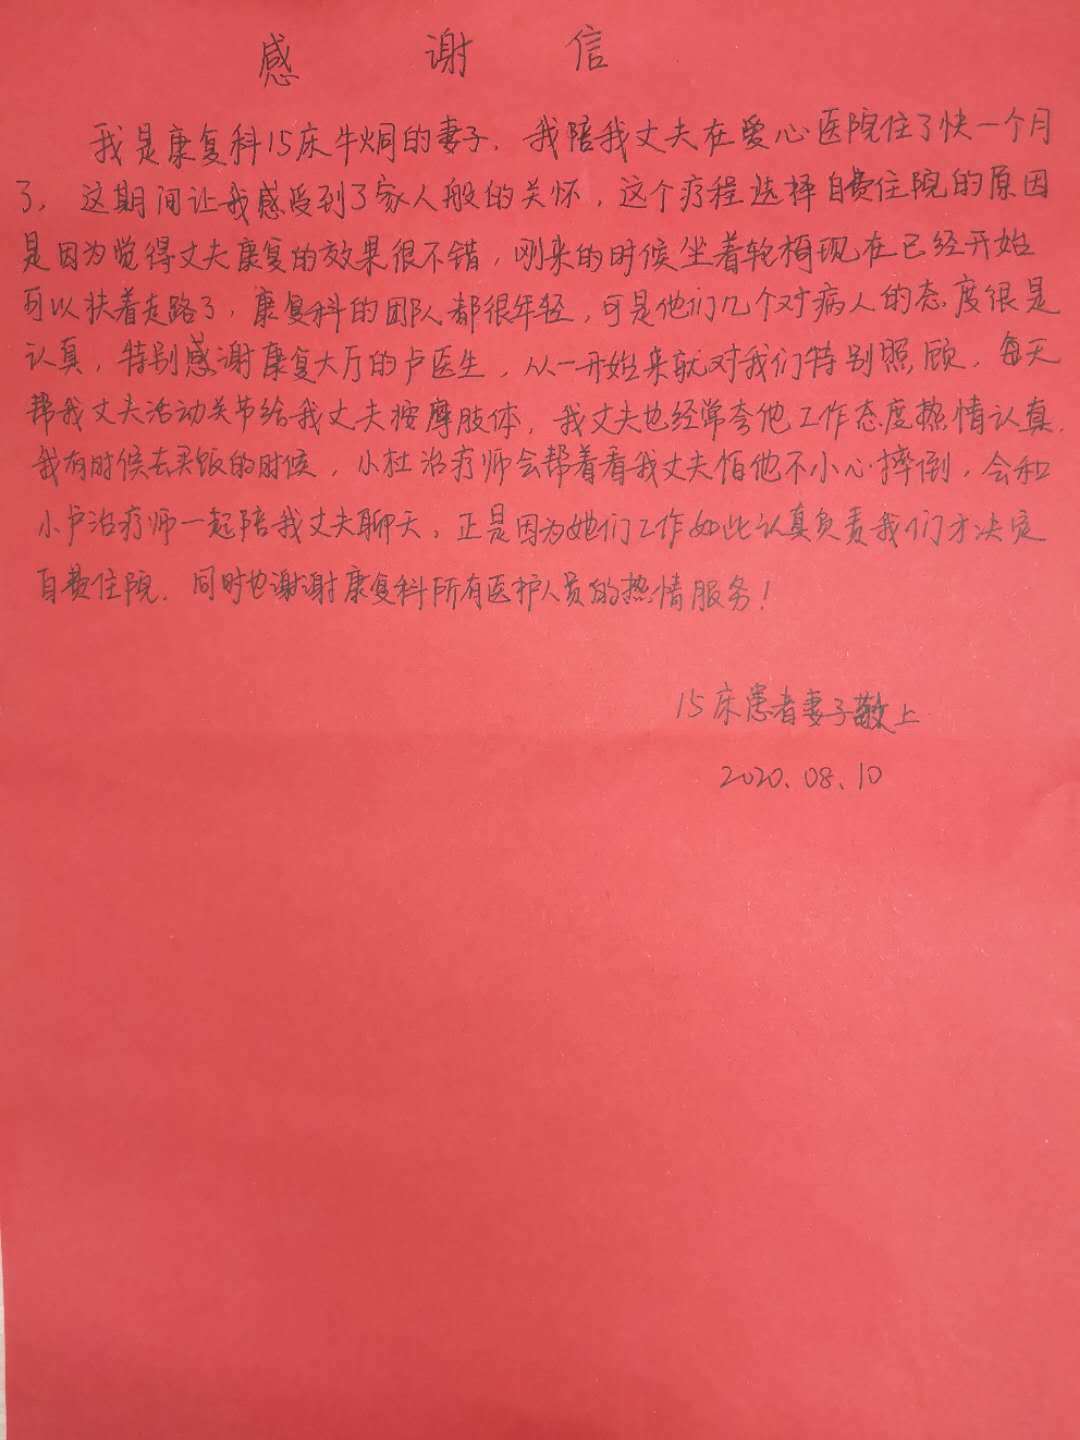 感谢信
我是康复科15床牛炯的妻子，我陪我丈夫在爱心医院住了快一个月
了，这期间让我感受到了家人般的关怀，这个疗程选择自费住院的原因
是因为觉得丈夫康复的效果很不错，刚来的时候坐着轮椅现在已经开始
可以扶着走路了，康复科的团队都很年轻，可是他们几个对病人的态度很是
认真，特别感谢康复大厅的卢医生，从一开始来就对我们特别照顾，每天
帮我丈夫活动关节给我丈夫按摩肢体，我丈夫也经常夸他工作态度热情认真.
我有时候去买饭的时候，小杜治疗师会帮着看我丈夫怕他不小心摔倒，会和
小卢治疗师一起陪我丈夫聊天，正是因为她们工作如此认真负责我们才决定
自费住院. 同时也谢谢康复科所有医护人员的热情服务！
15床患者妻子敬上
2020.08.10